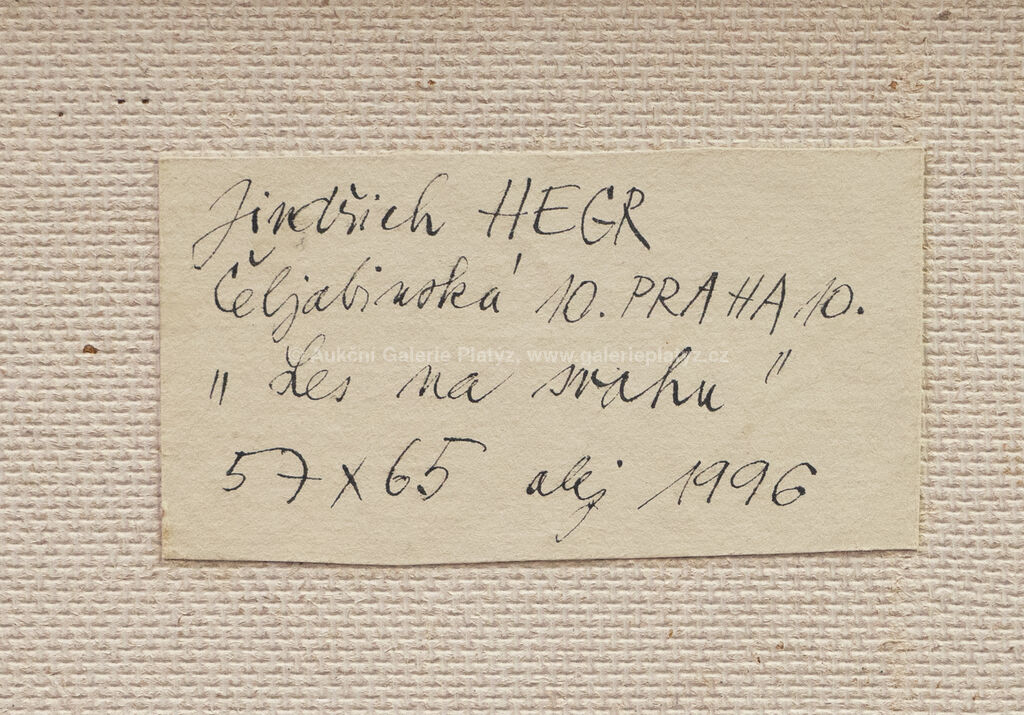 Jindřich HEGR
Čeljabinská 10. PRAHA 10.
© Aukční Galerie Platýz, www.galerieplatyz.cz
„ Les na svahu "
57 x 65 olej 1996